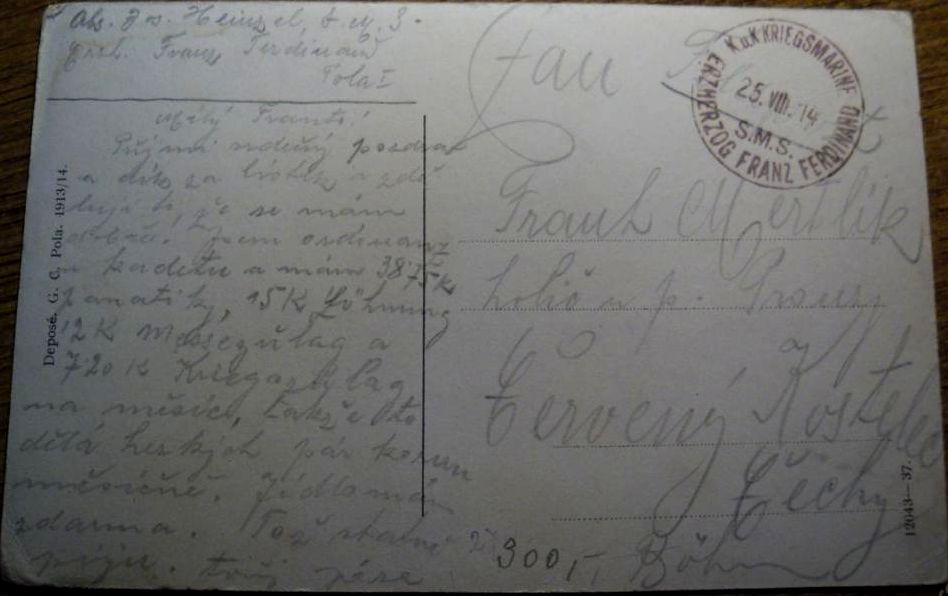 Abs. Jos. Heinzel, S. M. S.
Erzh. Franz Ferdinand
Pola I
Milý Franti!
Přijmi srdečný pozdrav
a dík za lístek a zdě
luji ti, že se mám
dobře. Jsem ordinanz
u kadetu a mám 38 75 K
15 K Löhnung
12 K Messezulag a
7 20 K Kriegszulag
na měsíc, takže to
dělá hezkých pár korun
měsíčně. Jídlo mám
zdarma. Tož statně
piju.
Deposé. G. C. Pola. 1913/14.
K.u.K KRIEGSMARINE
25. VIII. 14
S.M.S.
ERZHERZOG FRANZ FERDINAND
Pan
Frant Mertlík
holič u p.
Červený Kostelec
Čechy
Böhmen
300,-
12043—37.